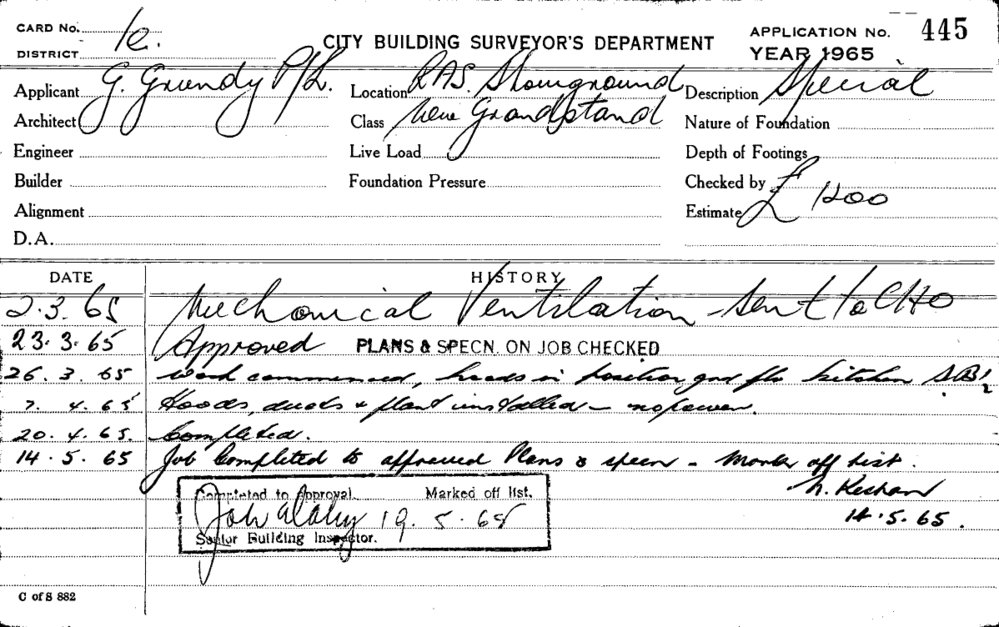 CARD No. 445
DISTRICT 1c. CITY BUILDING SURVEYOR'S DEPARTMENT APPLICATION No. YEAR 1965
Applicant G. Grundy P/L. Location RAS. Showground Description Special
Architect Class New Grandstand Nature of Foundation
Engineer Live Load Depth of Footings
Builder Foundation Pressure Checked by
Alignment Estimate £ 1200
D.A.
DATE HISTORY
2.3.65 Mechanical Ventilation - sent to CHO
23.3.65 Approved PLANS & SPECN. ON JOB CHECKED
26.3.65 Work commenced, hoods in position gnd flr kitchen
7.4.65 Hoods, ducts & plant installed - no power.
20.4.65. Completed.
14.5.65 Job Completed to approved Plans & specn - Marked off list.
14.5.65.
Completed to Approval. Marked off list.
19.5.65
Senior Building Inspector.
C of S 882